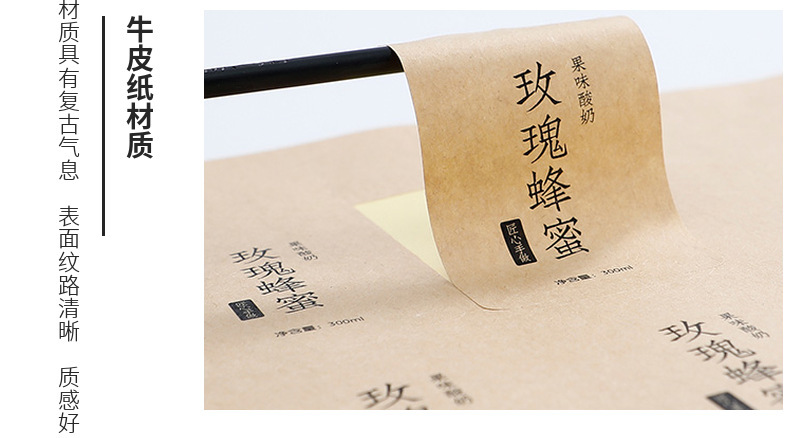 牛皮纸材质
材质具有复古气息 表面纹路清晰 质感好
果味酸奶
玫瑰蜂蜜
匠心手做
净含量：300ml
果味酸奶
玫瑰蜂蜜
匠心手做
净含量：300ml
果味酸奶
玫瑰
果味酸奶
玫瑰蜂